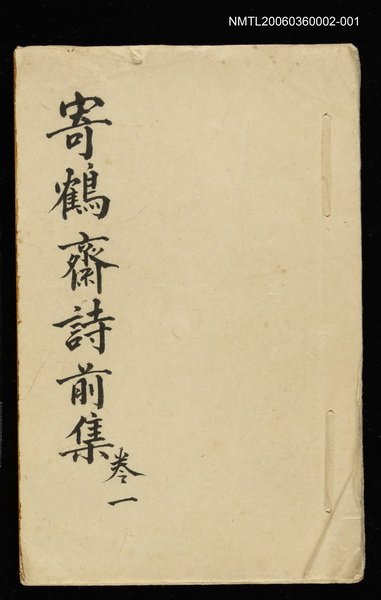 NMTL20060360002-001
寄鶴齋詩前集
卷一